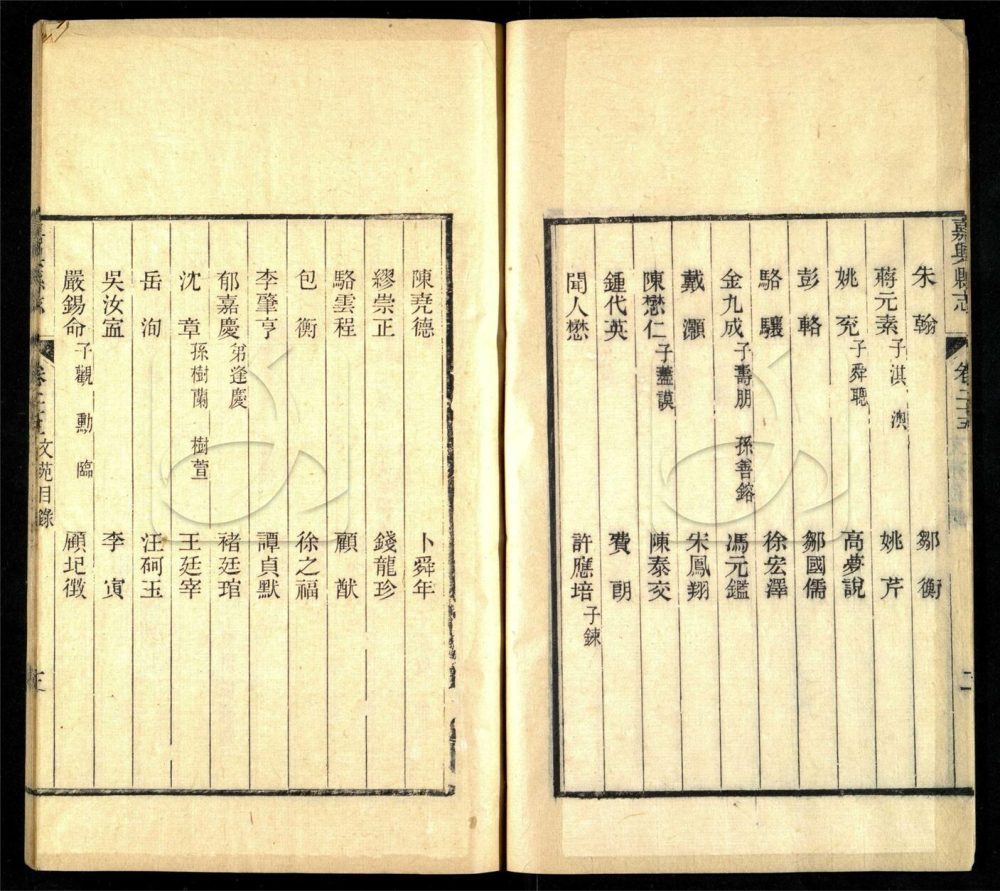 嘉興縣志 卷二十五 二
朱翰 鄒衡
蔣元素 子淇 澳 姚芹
姚兗 子舜聰 高夢說
彭輅 鄒國儒
駱驤 徐宏澤
金九成 子壽朋 孫善鎔 馮元鑑
戴灝 宋鳳翔
陳懋仁 子藎謨 陳泰交
鍾代英 費朗
聞人懋 許應培 子鍊
陳堯德 卜舜年
繆崇正 錢龍珍
駱雲程 顧猷
包衡 徐之福
李肇亨 譚貞默
郁嘉慶 弟逢慶 褚廷琯
沈章 孫樹蘭 樹萱 王廷宰
岳洵 汪砢玉
吳汝寊 李寅
嚴錫命 子觀 勳 臨 顧圯徵
文苑目錄